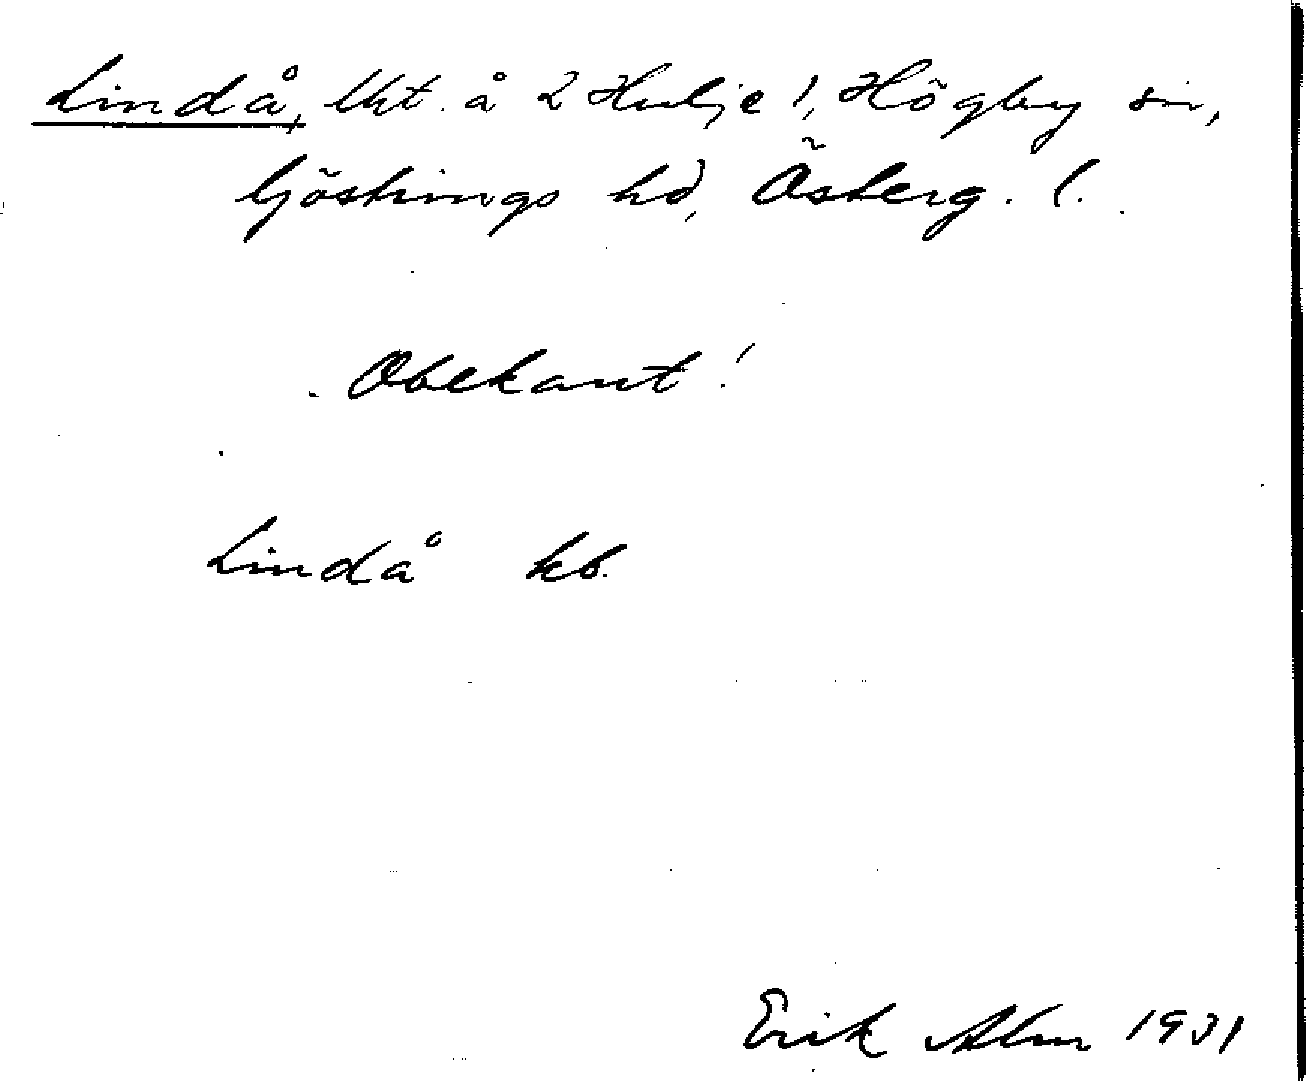 Lindå, tht. å 2 Hulje 1, Högby sn,
Göstrings hd, Österg. l.
Obekant!
Lindå kb.
Erik Alm 1931